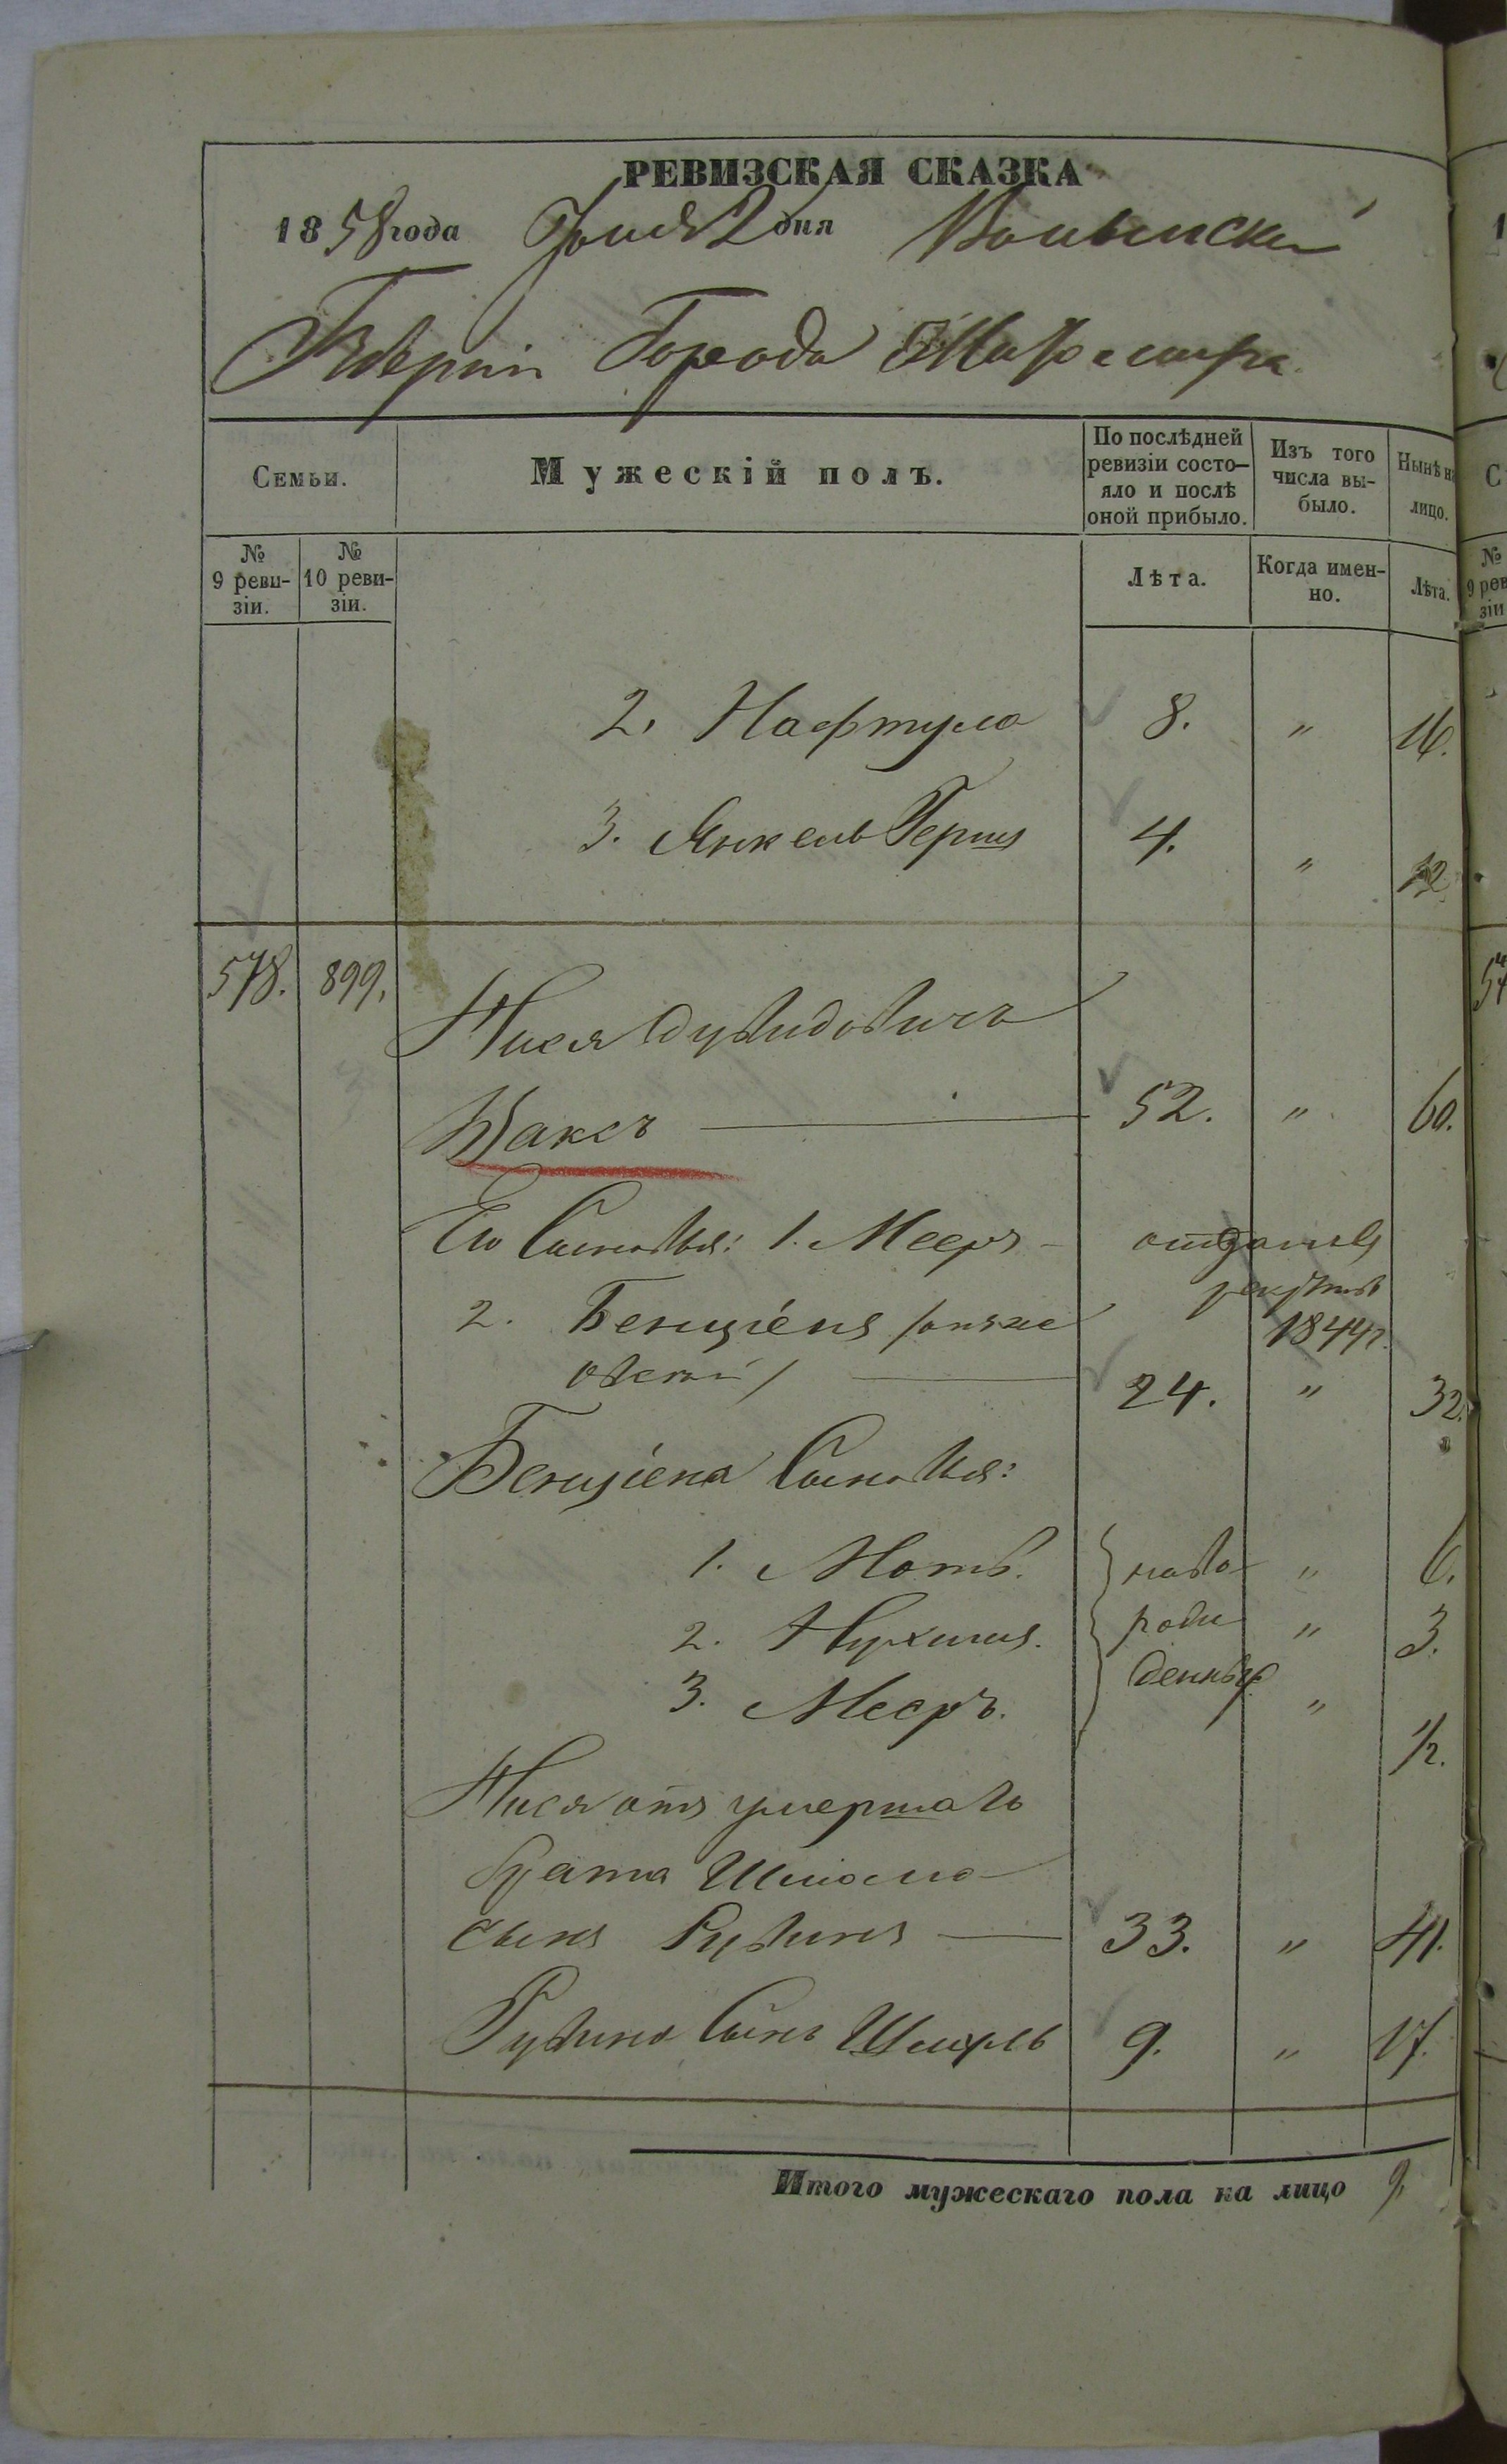 РЕВИЗСКАЯ СКАЗКА
1858 года Іюня 2 дня Волынской
Губерніи Города Житомира
Семьи. Мужескій полъ. По послѣдней ревизіи состо- яло и послѣ оной прибыло. Изъ того числа вы- было. Нынѣ на лицо.
№ 9 реви- зіи. № 10 реви- зіи. Лѣта. Когда имен- но. Лѣта.
2. Нафтула 8. " 16.
3. Янкель Герш 4. " 12
578. 899.
Нисен Дувидовичъ
Ваксъ 52. " 60.
Его Сыновья: 1. Мееръ отданъ
рекруты
2. Бенціенъ /онъже 1844г.
овский/ 24. " 32.
Бенціена Сыновья:
1. Моть. ново " 6.
2. Нухимъ. рож " 3.
3. Мееръ. денные " 1/2.
Нися отъ умершаго
брата Шлiома
сынъ Рувинъ 33. " 41.
Рувина Сынъ Шмуль 9. " 17.
Итого мужескаго пола на лицо 9.